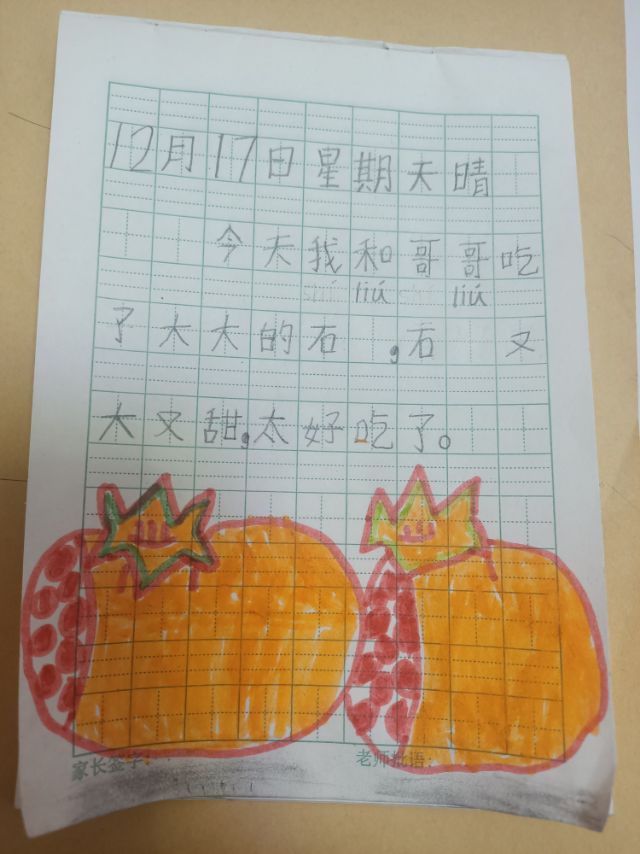 12月17日星期天晴
今天我和哥哥吃
liú liú
了大大的石 ,石 又
大又甜,太好吃了。
家长签字:
老师批语: